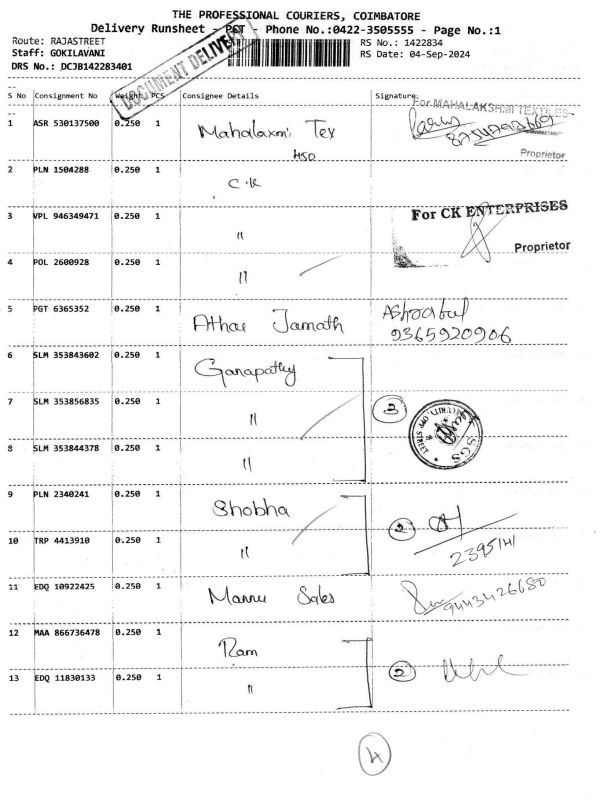 THE PROFESSIONAL COURIERS, COIMBATORE
Delivery Runsheet - PCT - Phone No.:0422-3505555 - Page No.:1
Route: RAJASTREET RS No.: 1422834
Staff: GOKILAVANI RS Date: 04-Sep-2024
DRS No.: DCJB142283401
DOCUMENT DELIVERY
S No Consignment No Weight PCS Consignee Details Signature
For MAHALAKSHMI TEXTILES
1 ASR 530137500 0.250 1 Mahalaxmi Tex
HSD
Proprietor
2 PLN 1504288 0.250 1 C.K
For CK ENTERPRISES
3 VPL 946349471 0.250 1 "
Proprietor
4 POL 2600928 0.250 1 "
5 PGT 6365352 0.250 1 Athar Jamath
9365920906
6 SLM 353843602 0.250 1 Ganapathy
7 SLM 353856835 0.250 1 " 3
SGS
8 SLM 353844378 0.250 1 "
9 PLN 2340241 0.250 1 Shobha 2
10 TRP 4413910 0.250 1 "
11 EDQ 10922425 0.250 1 Mannu Sales 9443426680
12 MAA 866736478 0.250 1 Ram
13 EDQ 11830133 0.250 1 " 2
4